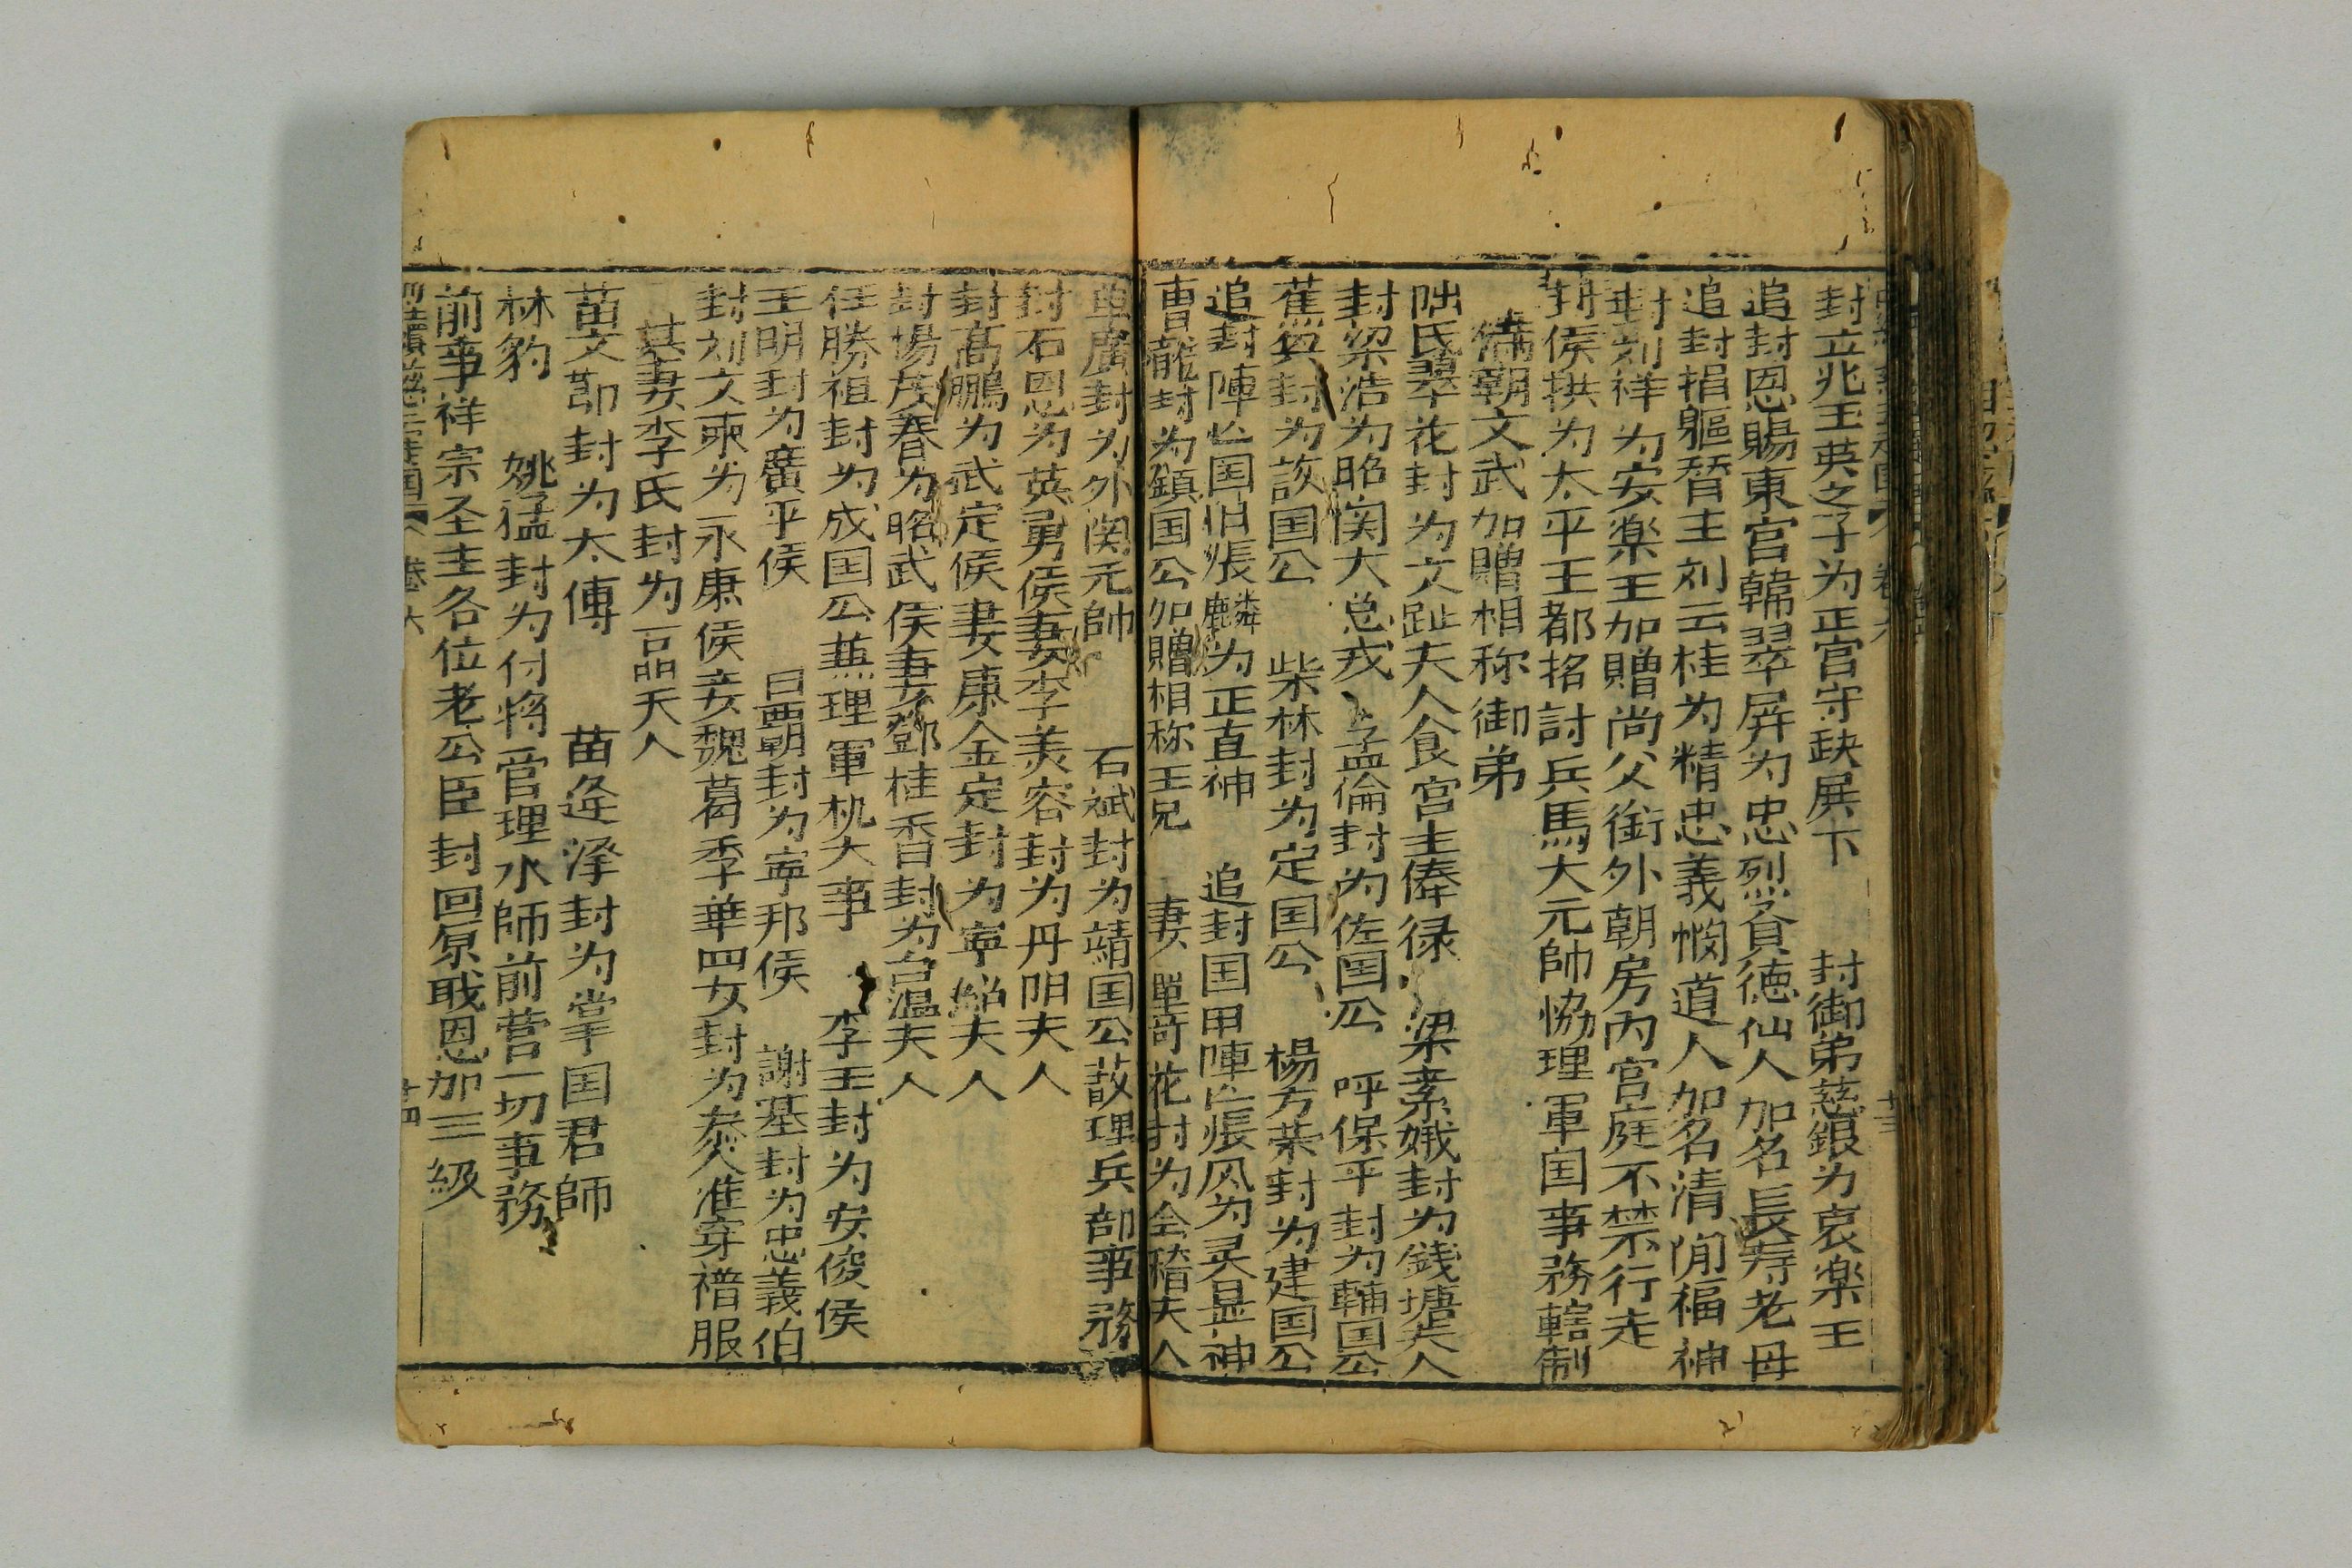 封立兆王英之子为正宫守缺展下　封御弟慈銀为哀楽王
追封恩賜東宫韓翠屏为忠烈貧德仙人加名長寿老母
追封捐軀晉主刘云桂为精忠義憫道人加名清閒福神
封刘祥为安楽王加贈尚父銜外朝房内宫庭不禁行走
封侯拱为太平王都招討兵馬大元帥協理軍国事務轄制
满朝文武加贈相称御弟
氏翠花封为文夫人食宫主俸禄　梁素娥封为銭塘夫人
封梁浩为昭関大总戎　孟倫封为佐国公　呼保平封为輔国公
蕉封为該国公　柴林封为定国公　楊方荣封为建国公
追封陣亡国旧張麟为正直神　追封国甲陣亡張风为灵显神
曹龍封为鎮国公加贈相称王兄　妻單奇花封为全積夫人
單廣封为外関元帥　石斌封为靖国公兼理兵部事務
封石恩为英勇侯妻李美容封为丹阳夫人
封高鵬为武定侯妻康金定封为寧夫人
封楊茂春为昭武侯妻鄧桂香封为台温夫人
任勝祖封为成国公兼理軍机大事　李王封为安俊侯
王明封为廣平侯　吕覇朝封为寧邦侯　謝基封为忠義伯
封刘文東为永康侯妾魏葛季華四女封为泰人准穿服
其妻李氏封为一品天人
苗文節封为太傅　苗逢泽封为掌国君師
林豹　姚猛封为付将管理水師前营一切事務
前事祥宗圣主各位老公臣封回原戢恩加三級
卷六　十四